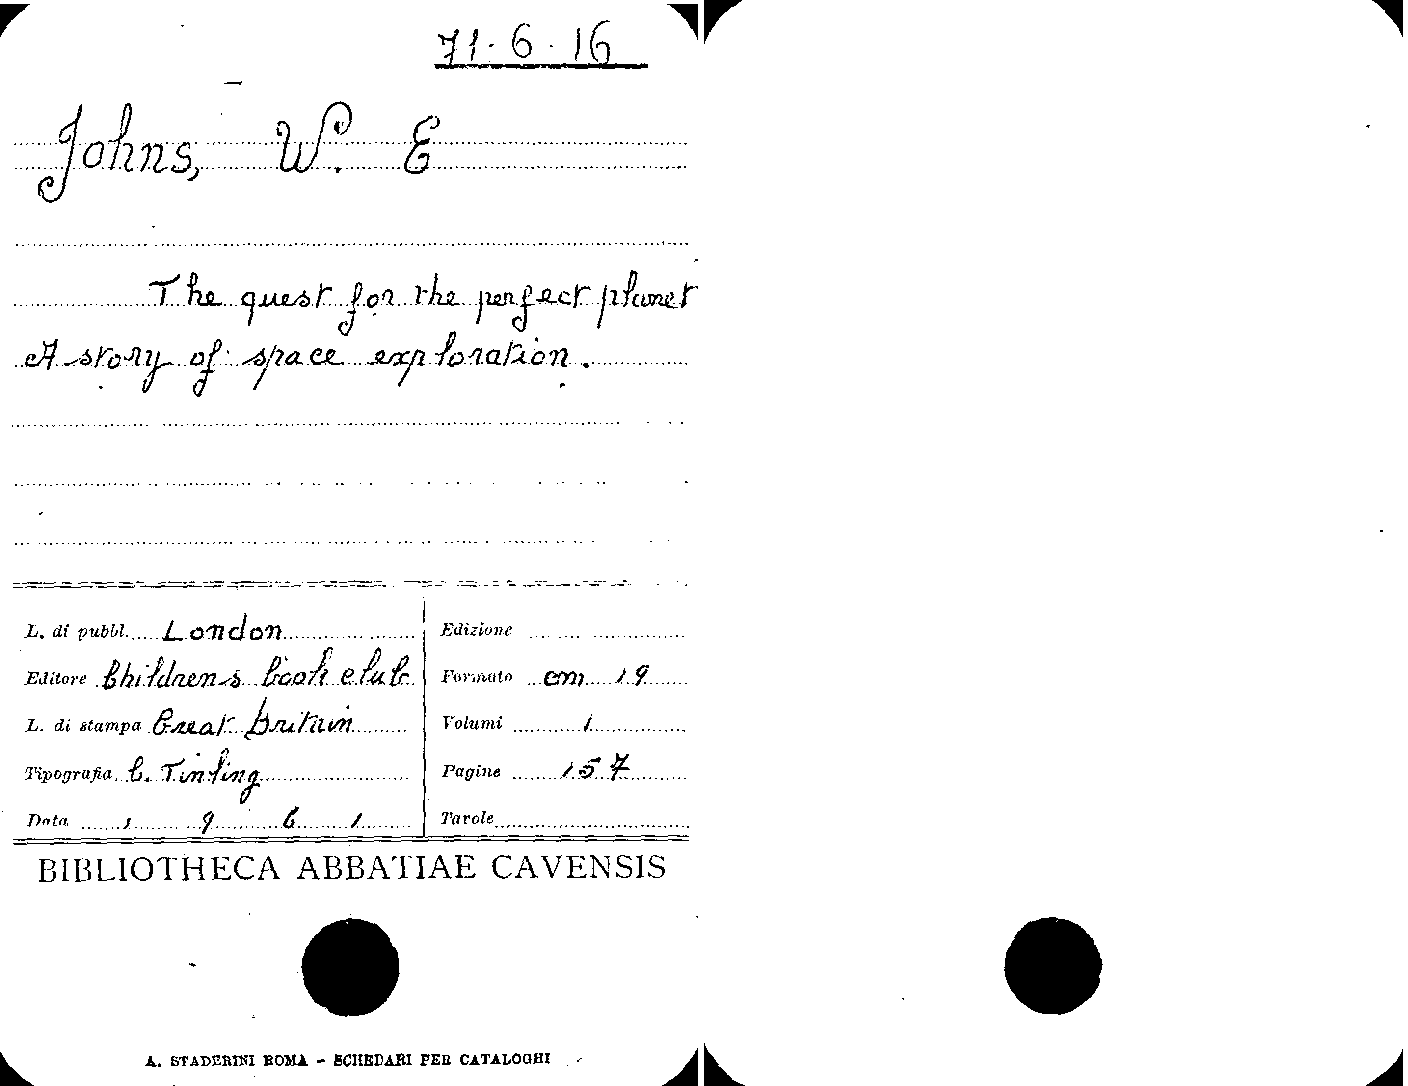 71·6·16
Johns, W. E
The quest for the perfect planet
A story of space exploration.
L. di pubbl. London
Editore Childrens book club
L. di stampa Great Britain
Tipografia C. Tinling
Data 1961
Edizione
Formato cm 19
Volumi 1
Pagine 157
Tavole
BIBLIOTHECA ABBATIAE CAVENSIS
A. STADERINI ROMA - SCHEDARI PER CATALOGHI